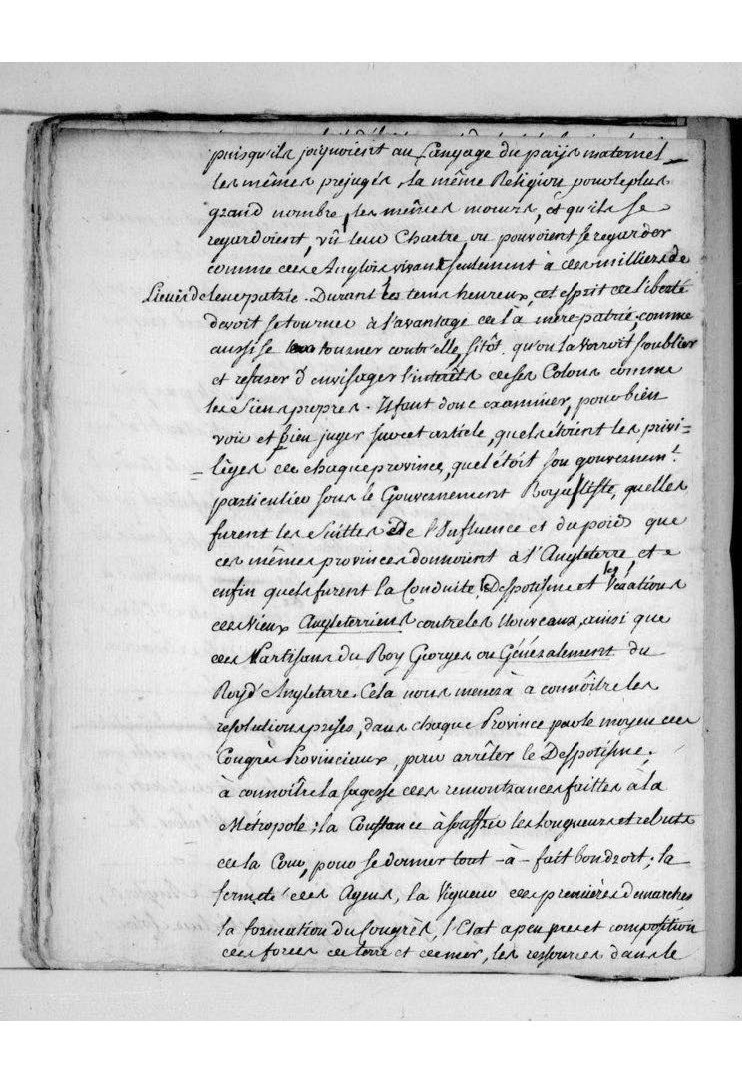 puisqu'ils joignoient au Langage du païs maternel
les mêmes prejugés, la même Religion pour le plus
grand nombre, les mêmes mœurs, et qu'ils se
regardoient, vû leur Chartre ou pouvoient se regarder
comme des Anglois vivant seulement à des milliers de
Lieües de leur patrie. Durant les tems heureux, cet esprit de liberté
devoit se tourner à l'avantage de la mere patrie, comme
aussi se tourner contr'elle, sitôt qu'on la verroit s'oublier
et refuser d'envisager l'interêts de ses Colons comme
les Siens propres. Il faut donc examiner, pour bien
voir et bien juger sur cet article, quels étoient les privi=
=lèges de chaque province, quel étoit son gouvernemt.
particulier sous le Gouvernement Royaliste, quelles
furent les Suittes de l'Influence et du poids que
ces mêmes provinces donnoient à l'Angleterre, et
enfin quels furent la Conduite Despotisme et les Vexations
des Vieux Angleterriens contre les Nouveaux, ainsi que
des Partisans du Roy Georges ou Généralement du
Roy d'Angleterre. Cela nous menera a connôitre les
resolutions prises, dans chaque Province par le moyen des
Congrès Provinciaux, pour arrêter le Despotisme;
à connoître la sagesse des remontrances faittes à la
Métropole; la Constance à souffrir les longueurs et rebuts
de la Cour, pour se donner tout-à-fait bon droit; la
fermeté des Agens, la Vigueur des premières demarches
la formation du Congrès, l'Etat a peu pres et composition
des forces de terre et de mer, les ressources dans le